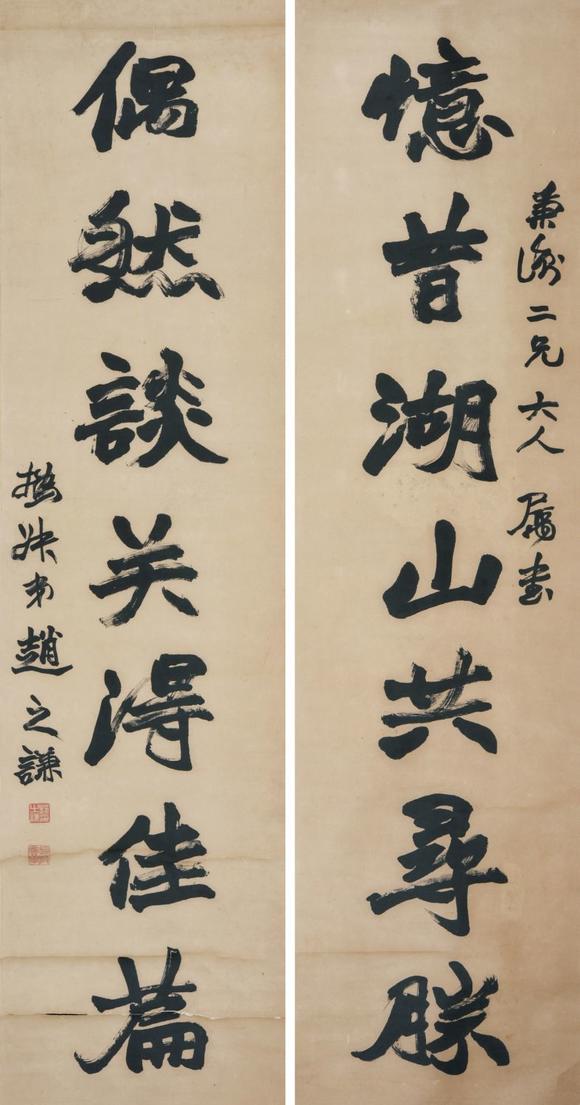 兼二兄大人 屬書
憶昔湖山共尋勝
偶然談笑得佳篇
撝叔弟趙之謙